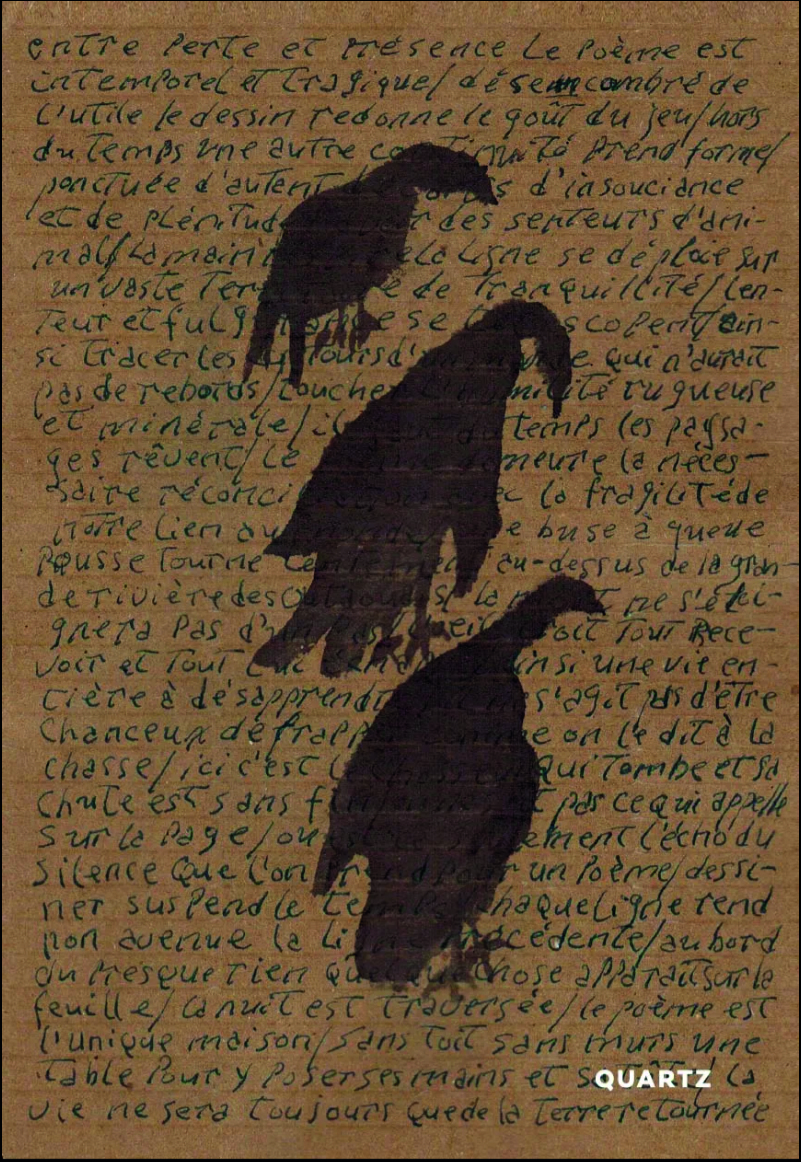 entre perte et présence Le poème est
intemporel et tragique/ désencombré de
l'utile le dessin redonne le goût du jeu/hors
du temps une autre prend forme/
ponctuée d'autant d'insouciance
et de plénitude des senteurs d'ani-
mal/La main la Ligne se déploie sur
un vaste de tranquillité/len-
teur et se ain-
si tracer les qui n'aurait
pas de rebords/toucher rugueuse
et minérale/ du temps les paysa-
ges rêvent/Le demeure la néces-
saire réconciliation avec la fragilité de
notre lien au buse à queue
Rousse tourne lentement au-dessus de la gran-
de rivière des Outaouais/ la ne s'étei-
gnera pas doit tout Rece-
voir et tout ainsi une vie en-
tière à désapprendre s'agit pas d'être
chanceux de frapper comme on le dit à la
chasse/ici c'est qui tombe et sa
chute est sans fin/ pas ce qui appelle
sur la page/ou l'écho du
silence que l'on prend pour un poème/dessi-
ner suspend le temps/chaque Ligne rend
non avenue la ligne précédente/au bord
du presque rien quelque chose apparaît sur la
feuille/la nuit est traversée/le poème est
l'unique maison/sans toit sans murs une
table pour y poser ses mains et la
vie ne sera toujours que de la terre retournée
QUARTZ